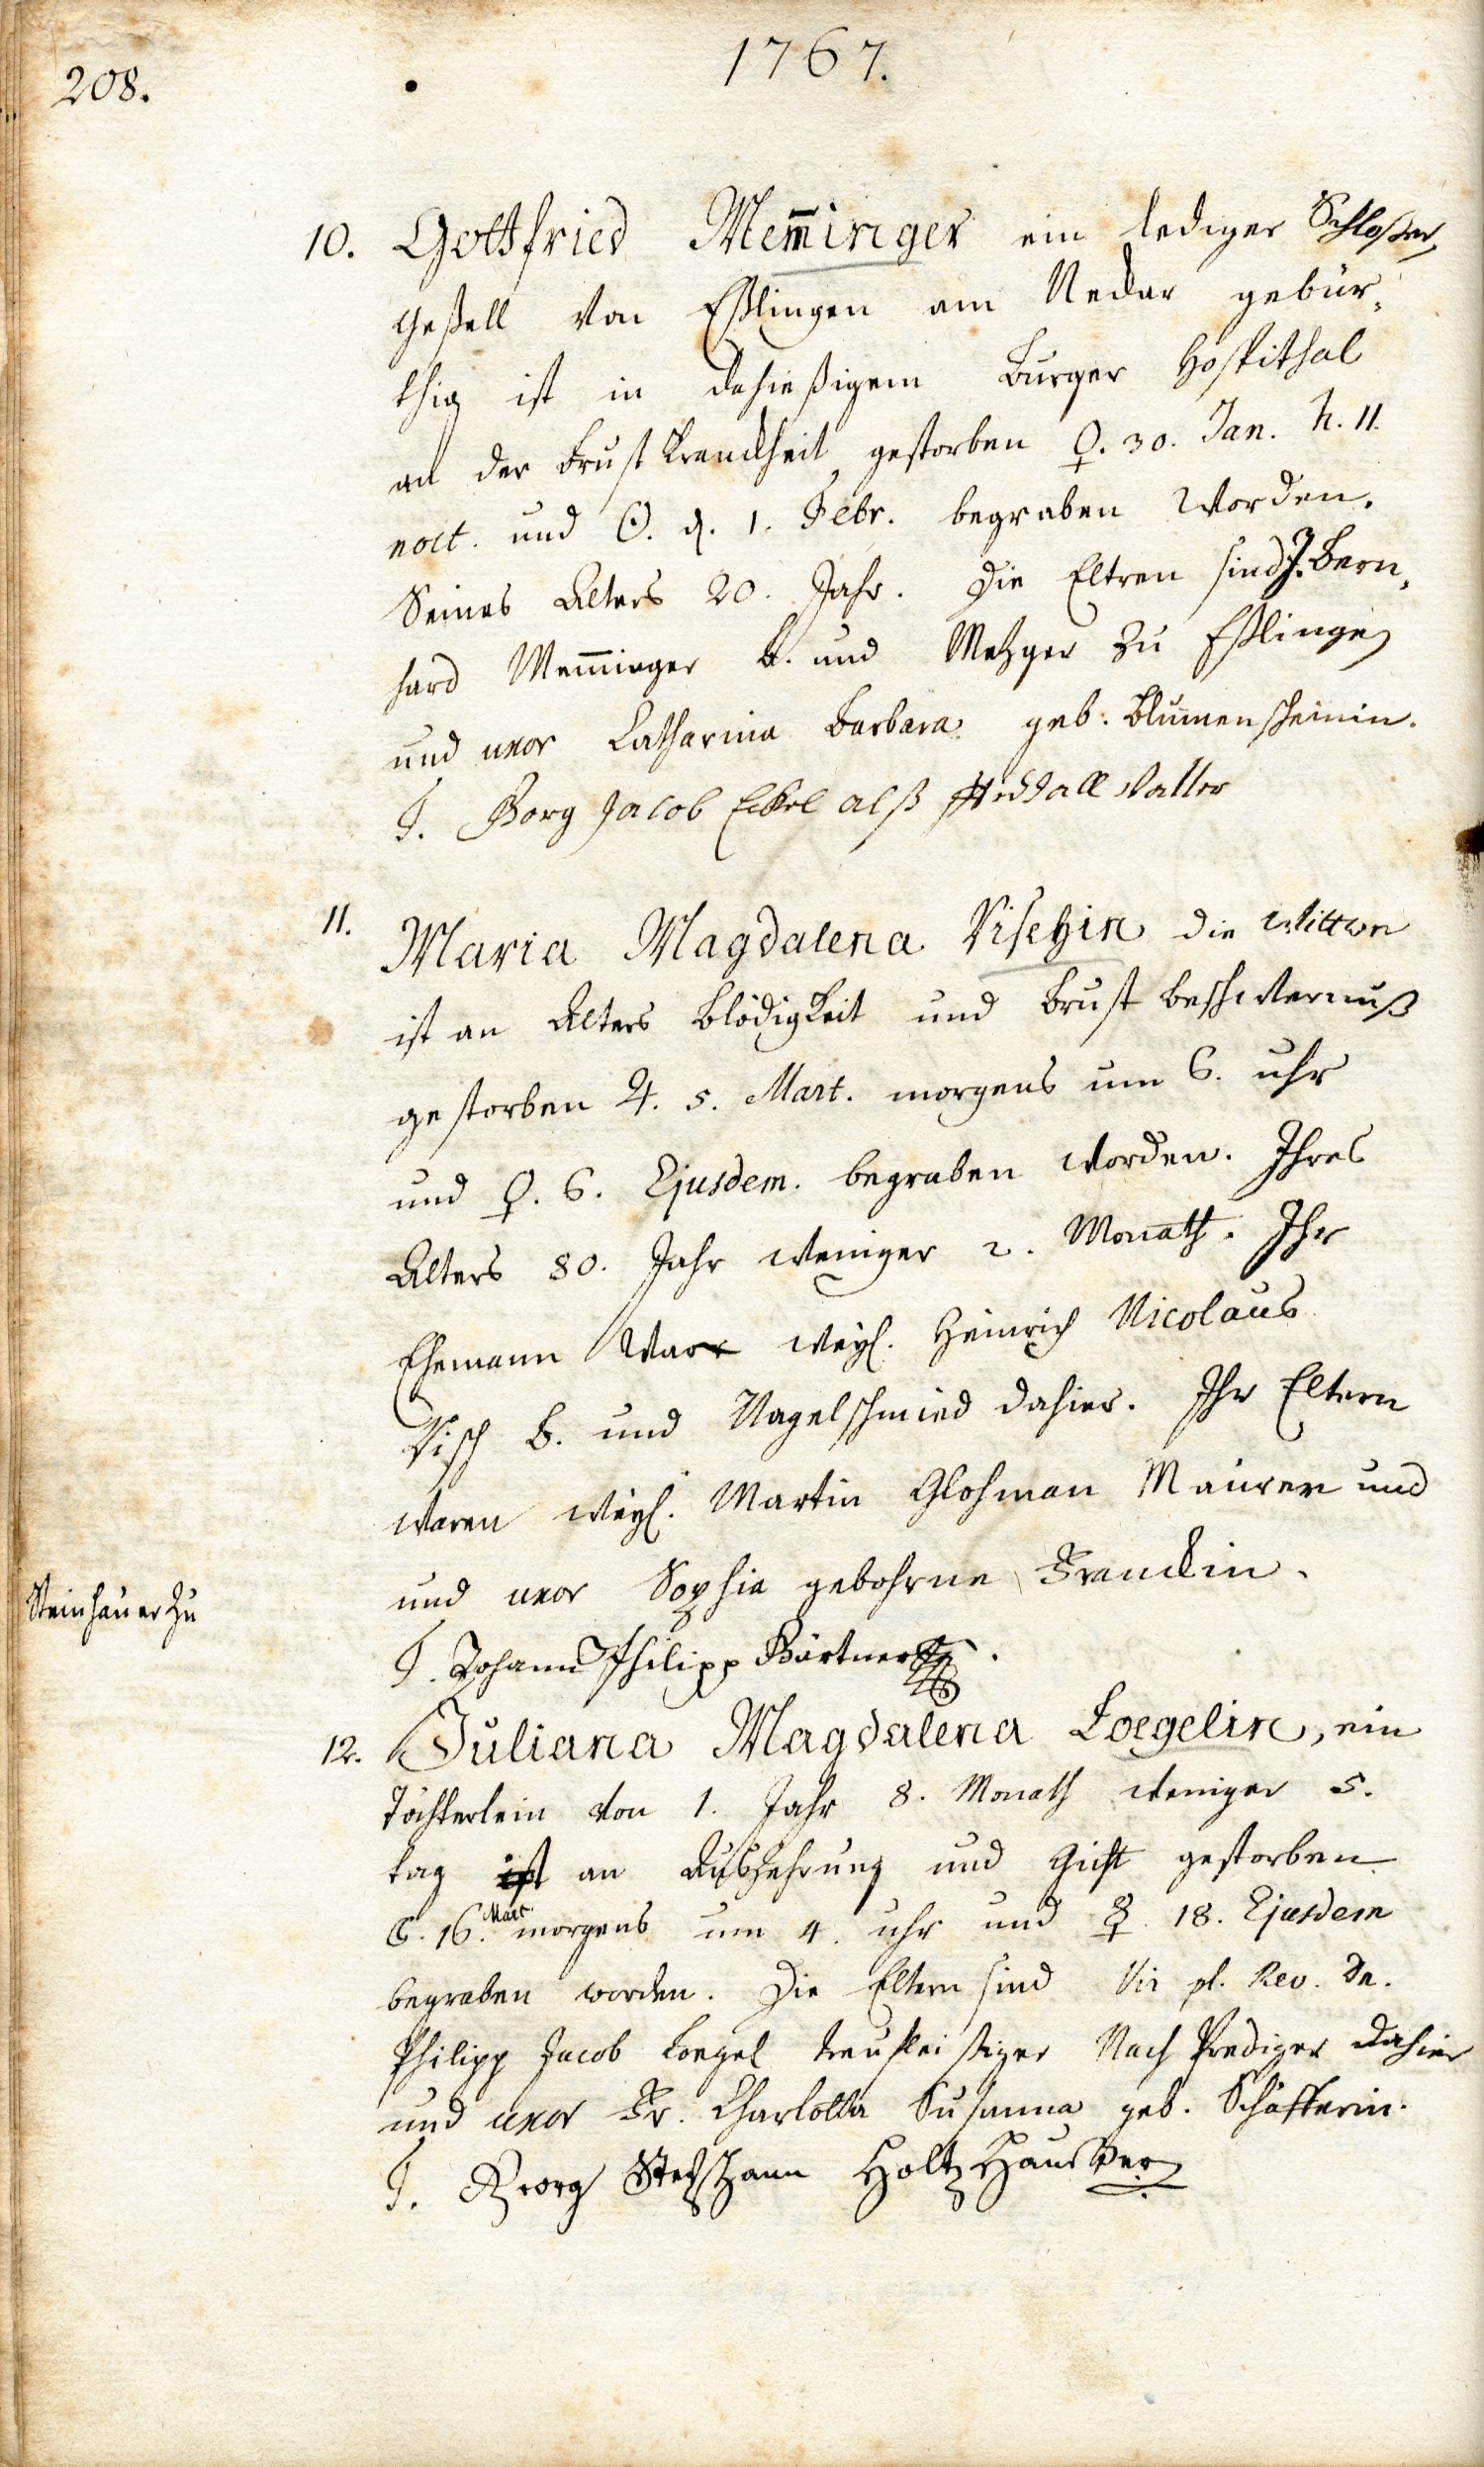 208.
1767.
10. Gottfried Mem̄inger ein lediger Schloßer,
Geßell von Eßlingen am Neckar gebür,
thig ist in dahießigem Burger Hospithal
an der Brust Kranckheit gestorben ♀. 30. Jan. h. 11.
noct. und ☉. d. 1. Febr. begraben worden.
Seines Alters 20. Jahr. Die Eltren sind J. Bern,
hard Mem̄inger b. und Metzger zu Eßlingen
und uxor Catharina Barbara geb. Blumenscheinin.
T. Georg Jacob Eckel alß Vatter
11. Maria Magdalena Vischin die Wittwe
ist an Alters Blödigkeit und Brust beschwernuß
gestorben ♃. 5. Mart. morgens um 6. uhr
und ♀. 6. Ejusdem. begraben worden. Ihres
Alters 80. Jahr weniger 2. Monath. Ihr
Ehemann war weyl. Heinrich Nicolaus
Visch b. und Nagelschmied dahier. Ihr Eltern
waren weyl. Martin Glohman Maurer und
Steinhauer zu
und uxor Sophia gebohrne Franckin.
T. Johann Philipp Gärtner
12. Juliana Magdalena Loegelin, ein
Töchterlein von 1. Jahr 8. Monath weniger 5.
tag ist an Auszehrung und Gicht gestorben
☾. 16. Mart. morgens um 4. uhr und ☿. 18. Ejusdem
begraben worden. Die Eltern sind Vir pl. Rev. Dn.
Philipp Jacob Loegel treufleißiger Nach Prediger dahier
und uxor Fr. Charlotta Susanna geb. Schäfferin.
T. Georg Holtz Hauser